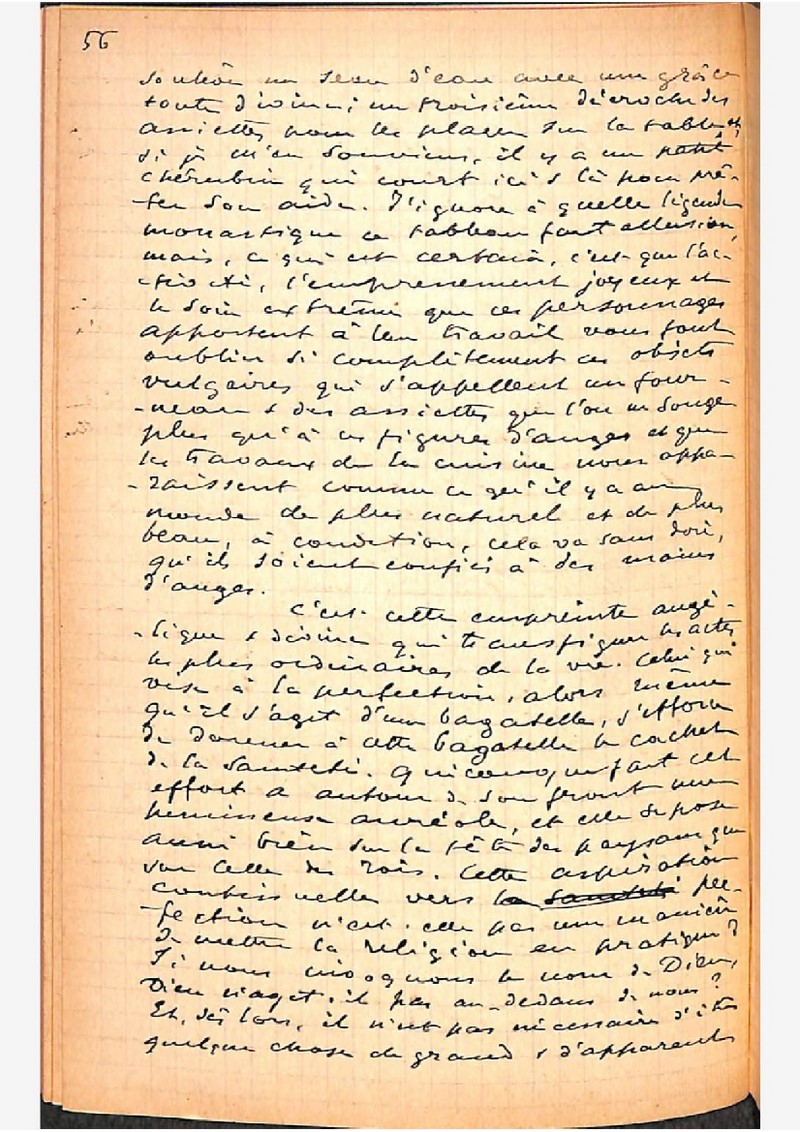 56
soulève un seau d'eau avec une grâce
toute divine; un troisième décroche des
assiettes pour les placer sur la table et,
si je m'en souviens, il y a un petit
chérubin qui court ici & là pour prê-
-ter son aide. J'ignore à quelle légende
monastique ce tableau fait allusion,
mais, ce qui est certain, c'est que l'ac-
-tivité, l'empressement joyeux et
le soin extrême que ces personnages
apportent à leur travail vous font
oublier si complètement ces objets
vulgaires qui s'appellent un four-
-neau & des assiettes que l'on ne songe
plus qu'à ces figures d'anges et que
les travaux de la cuisine nous appa-
-raissent comme ce qu'il y a au
monde de plus naturel et de plus
beau, à condition, cela va sans dire,
qu'ils soient confiés à des mains
d'anges.
C'est cette empreinte angé-
-lique & divine qui transfigure les actes
les plus ordinaires de la vie. Celui qui
vise à la perfection, alors même
qu'il s'agit d'une bagatelle, s'efforce
de donner à cette bagatelle le cachet
de la sainteté. Quiconque fait cet
effort a autour de son front une
lumineuse auréole, et elle se pose
aussi bien sur la tête des paysans que
sur celle des rois. Cette aspiration
continuelle vers la sainteté per-
-fection n'est-elle pas une manière
de mettre la religion en pratique?
Si nous invoquons le nom de Dieu,
Dieu n'agit-il pas au-dedans de nous?
Et, dès lors, il n'est pas nécessaire d'être
quelque chose de grand & d'apparent